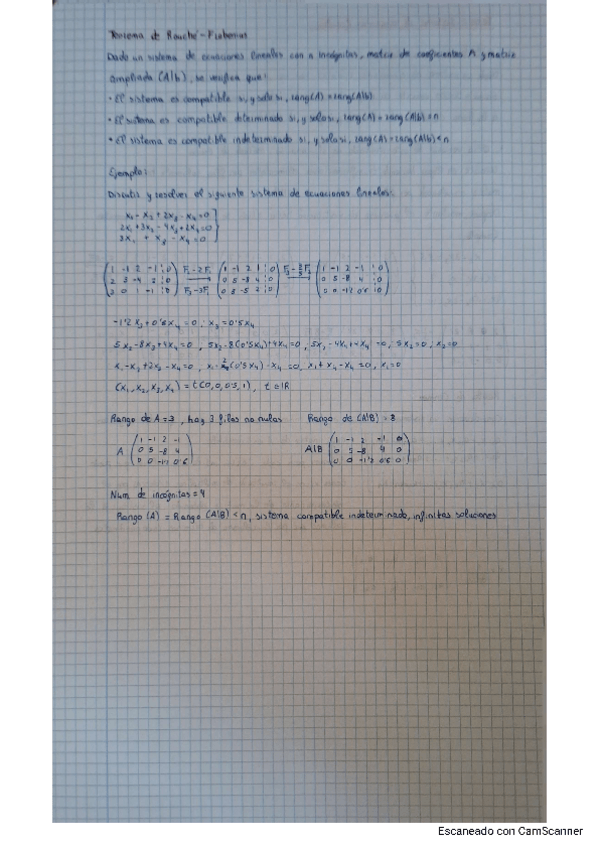 Teorema de Rouché-Frobenius
Dado un sistema de ecuaciones lineales con n incógnitas, matriz de coeficientes A y matriz
ampliada (A|b), se verifica que:
· El sistema es compatible si, y solo si, rang(A) = rang(A|b)
· El sistema es compatible determinado si, y solo si, rang(A) = rang(A|b) = n
· El sistema es compatible indeterminado si, y solo si, rang(A) = rang(A|b) < n
Ejemplo:
Discutir y resolver el siguiente sistema de ecuaciones lineales:
2x₁+3x₂-4x₃+2x₄=0
-1'2x₃+0'6x₄=0; x₃=0'5x₄
5x₂-8x₃+4x₄=0, 5x₂-8(0'5x₄)+4x₄=0, 5x₂-4x₄+4x₄=0; 5x₂=0; x₂=0
(x₁, x₂, x₃, x₄) = t(0,0,0'5,1), t∈ℝ
Rango de A = 3, hay 3 filas no nulas Rango de (A|B) = 3
A (1 -1 2 -1 A|B (1 -1 2 -1 0
0 5 -8 4 0 5 -8 4 0
0 0 -1'2 0'6) 0 0 -1'2 0'6 0)
Num de incógnitas = 4
Rango (A) = Rango (A|B) < n, sistema compatible indeterminado, infinitas soluciones
Escaneado con CamScanner